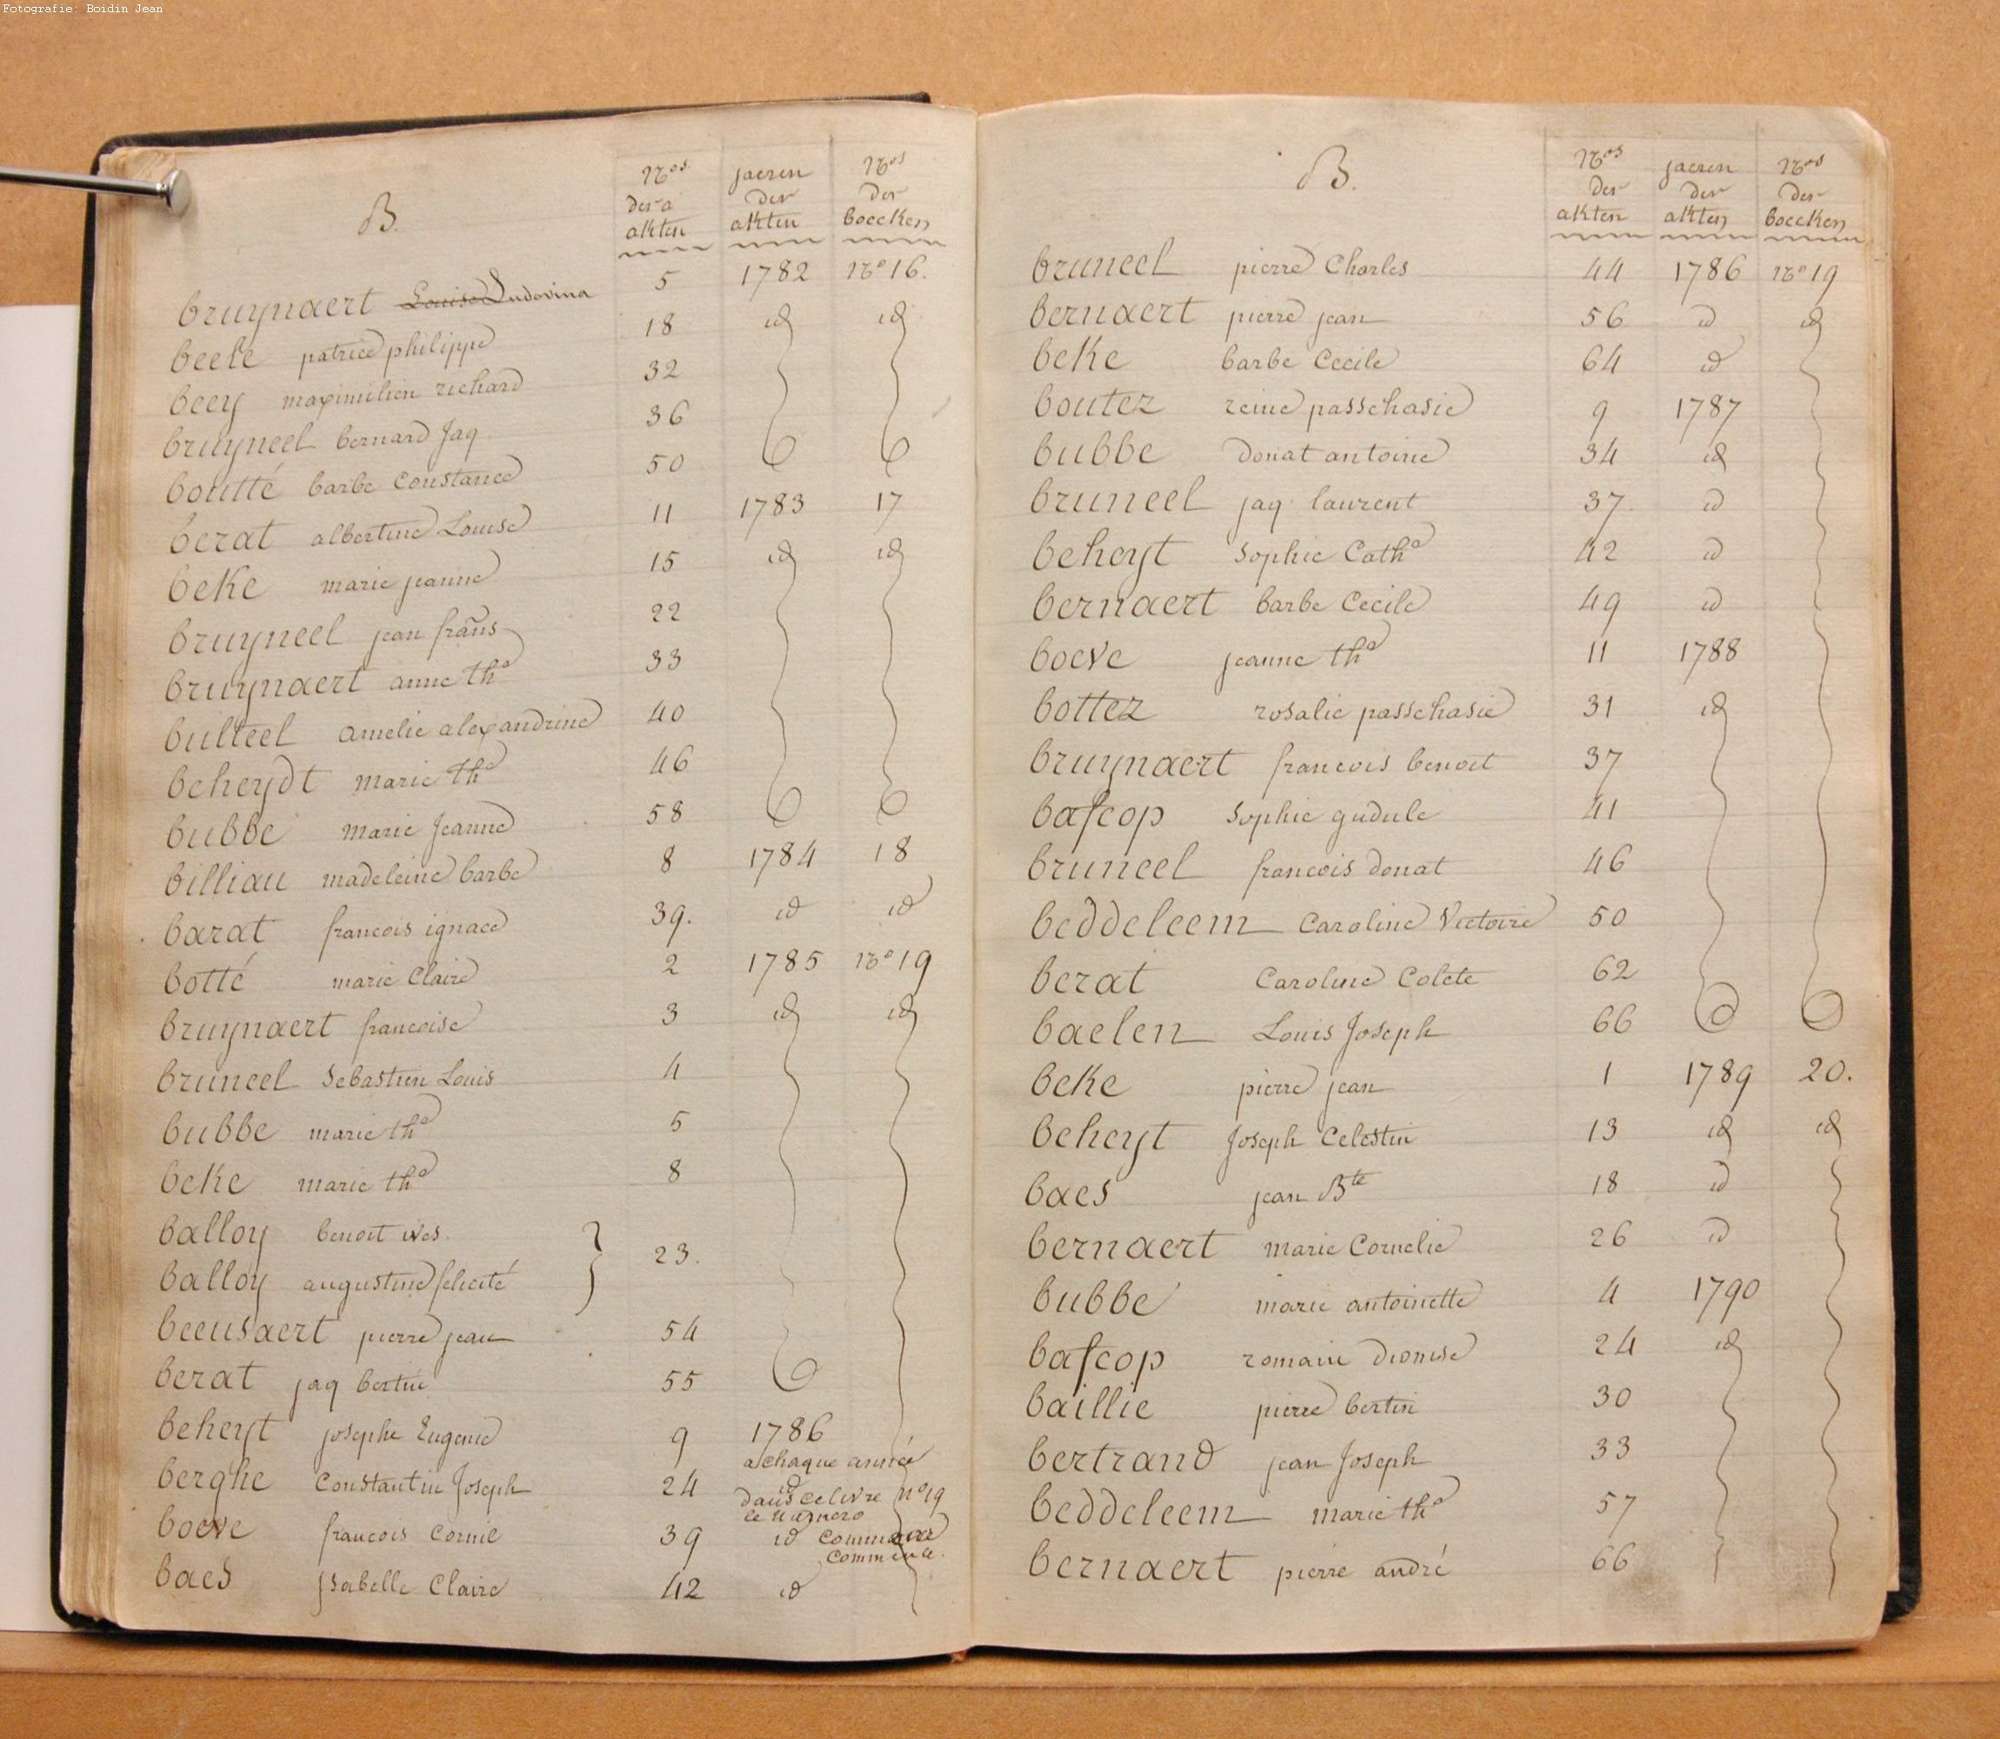 Fotografie: Boidin Jean
B.
Nos der akten
jaeren der akten
Nos der boecken
bruynaert Louise Ludovina 5 1782 No 16.
beele patrice philippe 18 id id
beey maximilien richard 32
bruyneel bernard Jaq 36
boutté barbe Constance 50
berat albertine Louise 11 1783 17
beke marie jeanne 15 id id
bruyneel jean frans 22
bruynaert anne tha 33
bulteel amelie alexandrine 40
beheydt marie tha 46
bubbe marie Jeanne 58
billiau madeleine barbe 8 1784 18
barat francois ignace 39. id id
botté marie Claire 2 1785 No 19
bruynaert francoise 3 id id
bruneel Sebastien Louis 4
bubbe marie tha 5
beke marie tha 8
balloy benoit ives.
balloy augustine felicité } 23.
beeusaert pierre jean 54
berat jaq bertin 55
beheyt josephe Eugenie 9 1786
a chaque année
berghe Constantin Joseph 24 id
dans ce livre no 19
le numero
boeve francois Cornie 39 id commence
commence.
baes Isabelle Claire 42 id
B.
Nos der akten
jaeren der akten
Nos der boecken
bruneel pierre Charles 44 1786 No 19
bernaert pierre jean 56 id id
beke barbe Cecile 64 id
boutez reine passchasie 9 1787
bubbe donat antoine 34 id
bruneel jaq laurent 37. id
beheyt Sophie Catha 42 id
bernaert barbe Cecile 49 id
boeve jeanne tha 11 1788
bottez rosalie passchasie 31 id
bruynaert francois benoit 37
bascop Sophie gudule 41
bruneel francois donat 46
beddeleem Caroline Victoire 50
berat Caroline Colete 62
baelen Louis Joseph 66
beke pierre jean 1 1789 20.
beheyt Joseph Celestin 13 id id
baes jean Bte 18 id
bernaert marie Cornelie 26 id
bubbe marie antoinette 4 1790
bascop romain dionise 24 id
baillie pierre bertin 30
bertrand jean Joseph 33
beddeleem marie tha 57
bernaert pierre andré 66